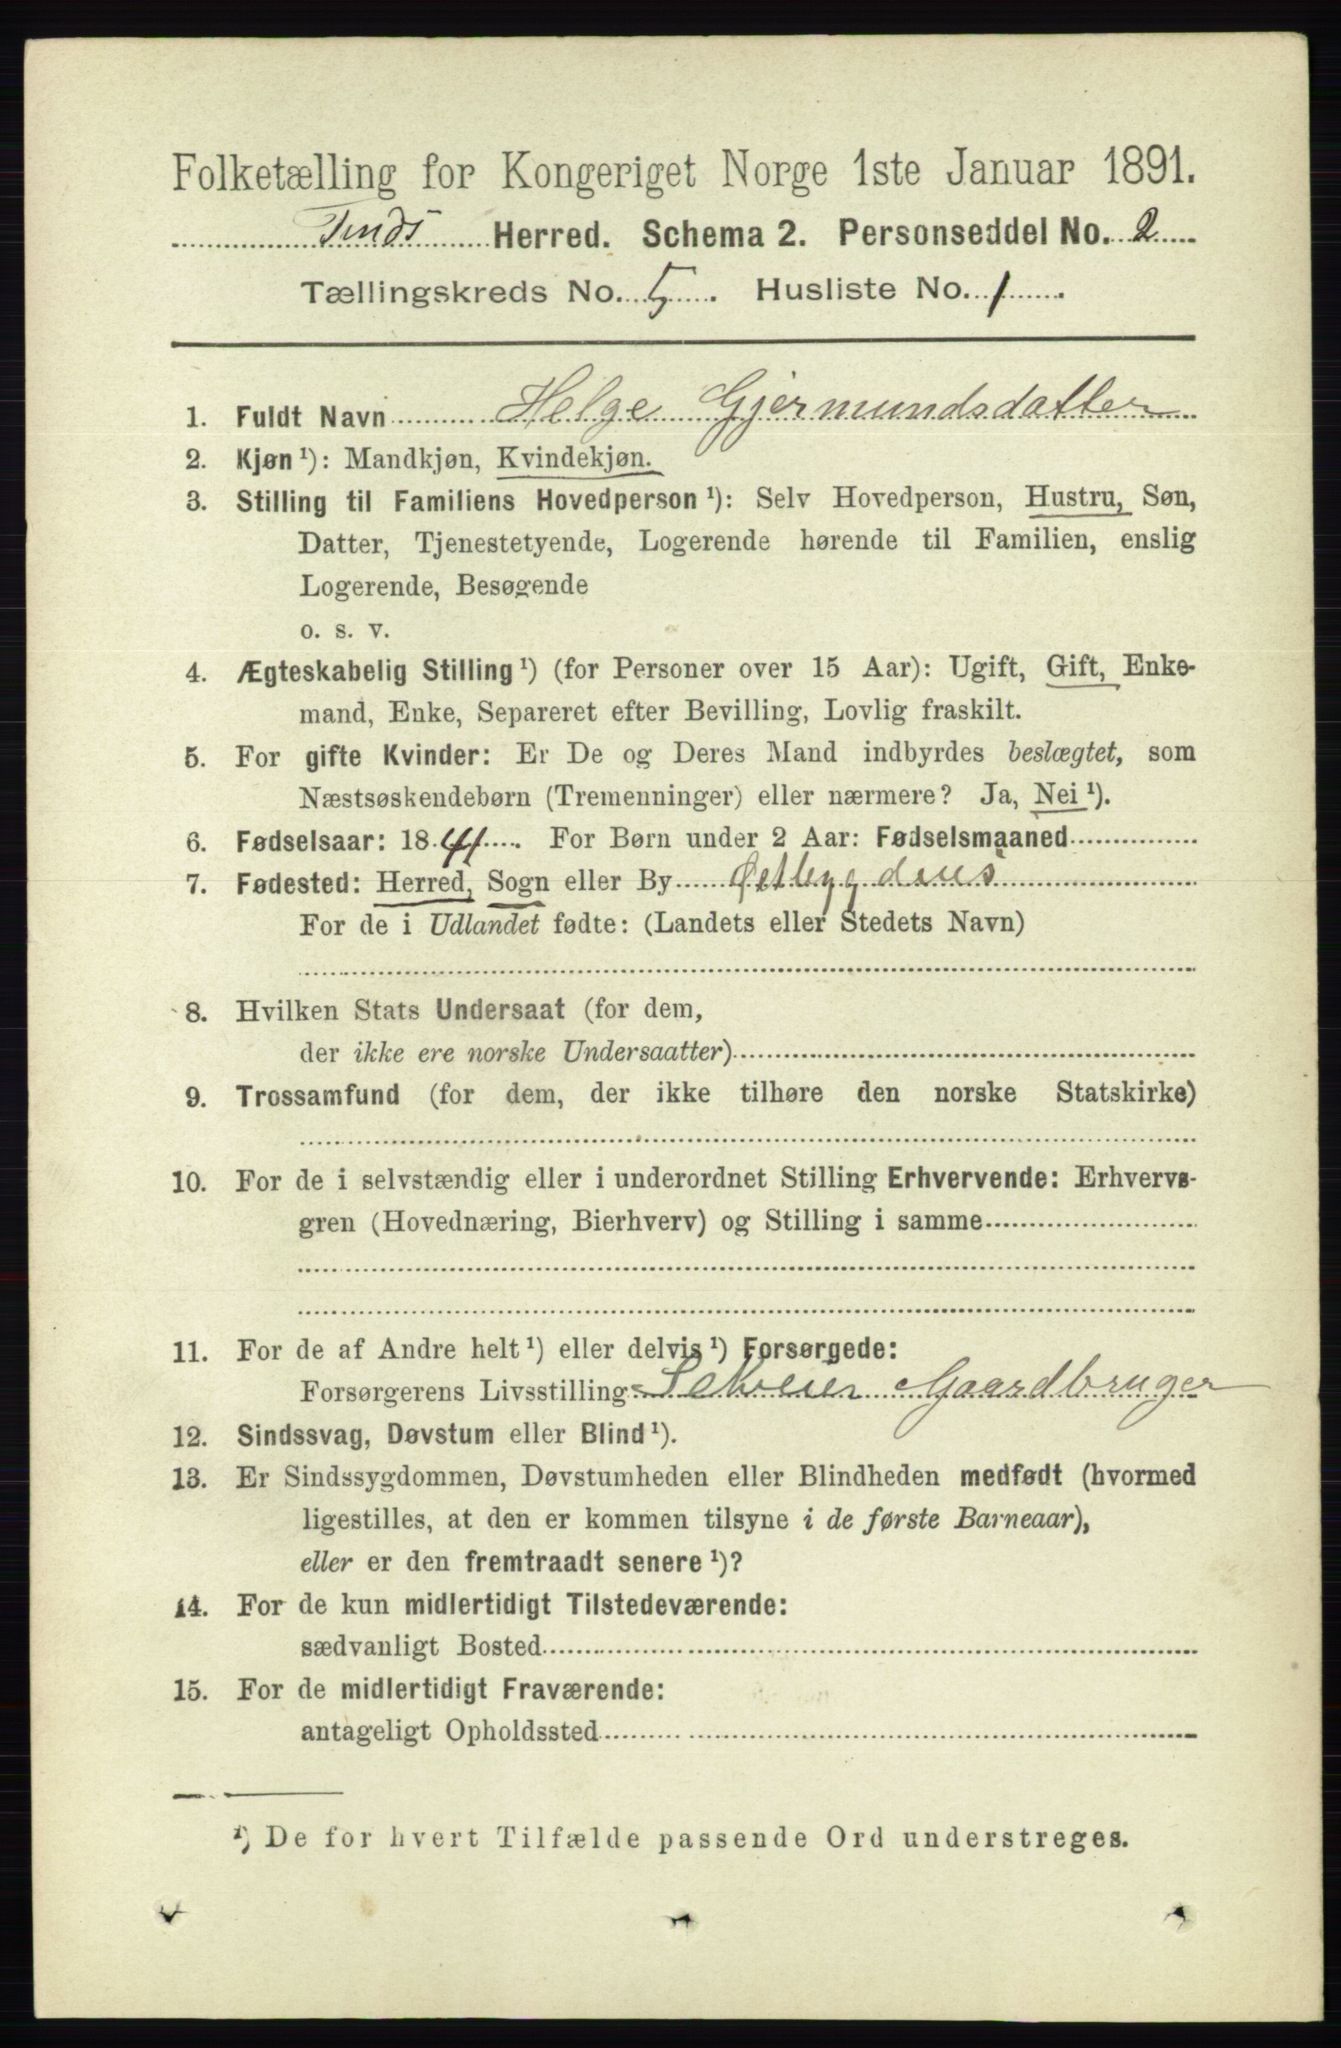 Folketælling for Kongeriget Norge 1ste Januar 1891.
Tinds Herred. Schema 2. Personseddel No. 2
Tællingskreds No. 5. Husliste No. 1.
1. Fuldt Navn Helge Gjermundsdatter
2. Kjøn ¹): Mandkjøn, Kvindekjøn.
3. Stilling til Familiens Hovedperson ¹): Selv Hovedperson, Hustru, Søn,
Datter, Tjenestetyende, Logerende hørende til Familien, enslig
Logerende, Besøgende
o. s. v.
4. Ægteskabelig Stilling ¹) (for Personer over 15 Aar): Ugift, Gift, Enke-
mand, Enke, Separeret efter Bevilling, Lovlig fraskilt.
5. For gifte Kvinder: Er De og Deres Mand indbyrdes beslægtet, som
Næstsøskendebørn (Tremenninger) eller nærmere? Ja, Nei ¹).
6. Fødselsaar: 1841. For Børn under 2 Aar: Fødselsmaaned
7. Fødested: Herred, Sogn eller By Østbygdens
For de i Udlandet fødte: (Landets eller Stedets Navn)
8. Hvilken Stats Undersaat (for dem,
der ikke ere norske Undersaatter)
9. Trossamfund (for dem, der ikke tilhøre den norske Statskirke)
10. For de i selvstændig eller i underordnet Stilling Erhvervende: Erhvervs-
gren (Hovednæring, Bierhverv) og Stilling i samme
11. For de af Andre helt ¹) eller delvis ¹) Forsørgede:
Forsørgerens Livsstilling Selveier Gaardbruger
12. Sindssvag, Døvstum eller Blind ¹).
13. Er Sindssygdommen, Døvstumheden eller Blindheden medfødt (hvormed
ligestilles, at den er kommen tilsyne i de første Barneaar),
eller er den fremtraadt senere ¹)?
14. For de kun midlertidigt Tilstedeværende:
sædvanligt Bosted
15. For de midlertidigt Fraværende:
antageligt Opholdssted
¹) De for hvert Tilfælde passende Ord understreges.